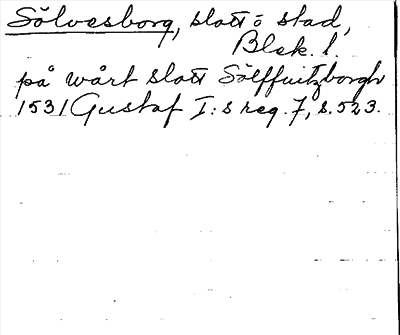 Sölvesborg, slott o stad,
Blek. l.
på wårt slott Sölffuitzborgh
1531 Gustaf I:s reg. 7, s. 523.